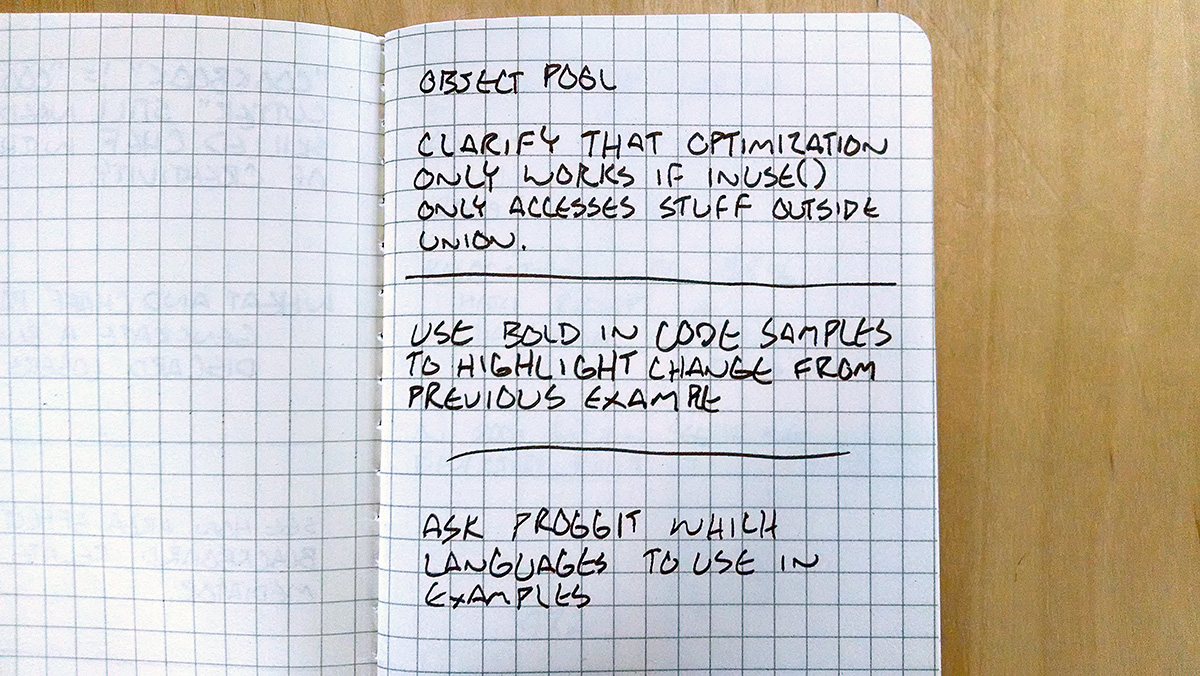 OBJECT POOL
CLARIFY THAT OPTIMIZATION
ONLY WORKS IF INUSE()
ONLY ACCESSES STUFF OUTSIDE
UNION.
USE BOLD IN CODE SAMPLES
TO HIGHLIGHT CHANGE FROM
PREVIOUS EXAMPLE
ASK PROGGIT WHICH
LANGUAGES TO USE IN
EXAMPLES